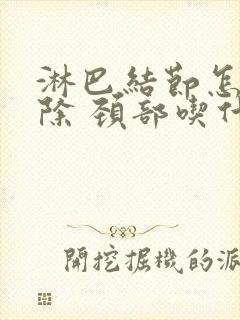 淋巴結節怎
除 頚部喫什
開挖掘機的派